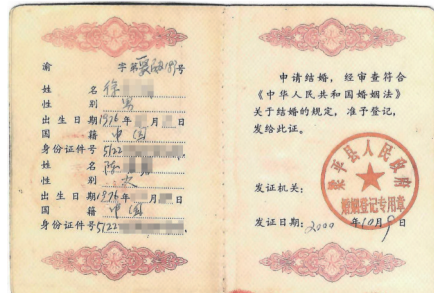 渝 字第 189号
姓 名 徐
性 别 男
出生日期1976年 月 日
国 籍 中国
身份证件号5122
姓 名 陈
性 别 女
出生日期1976年 月 日
国 籍 中国
身份证件号5122
申请结婚，经审查符合
《中华人民共和国婚姻法》
关于结婚的规定，准予登记，
发给此证。
梁平县人民政府
婚姻登记专用章
发证机关：
发证日期：2000 年10月9日